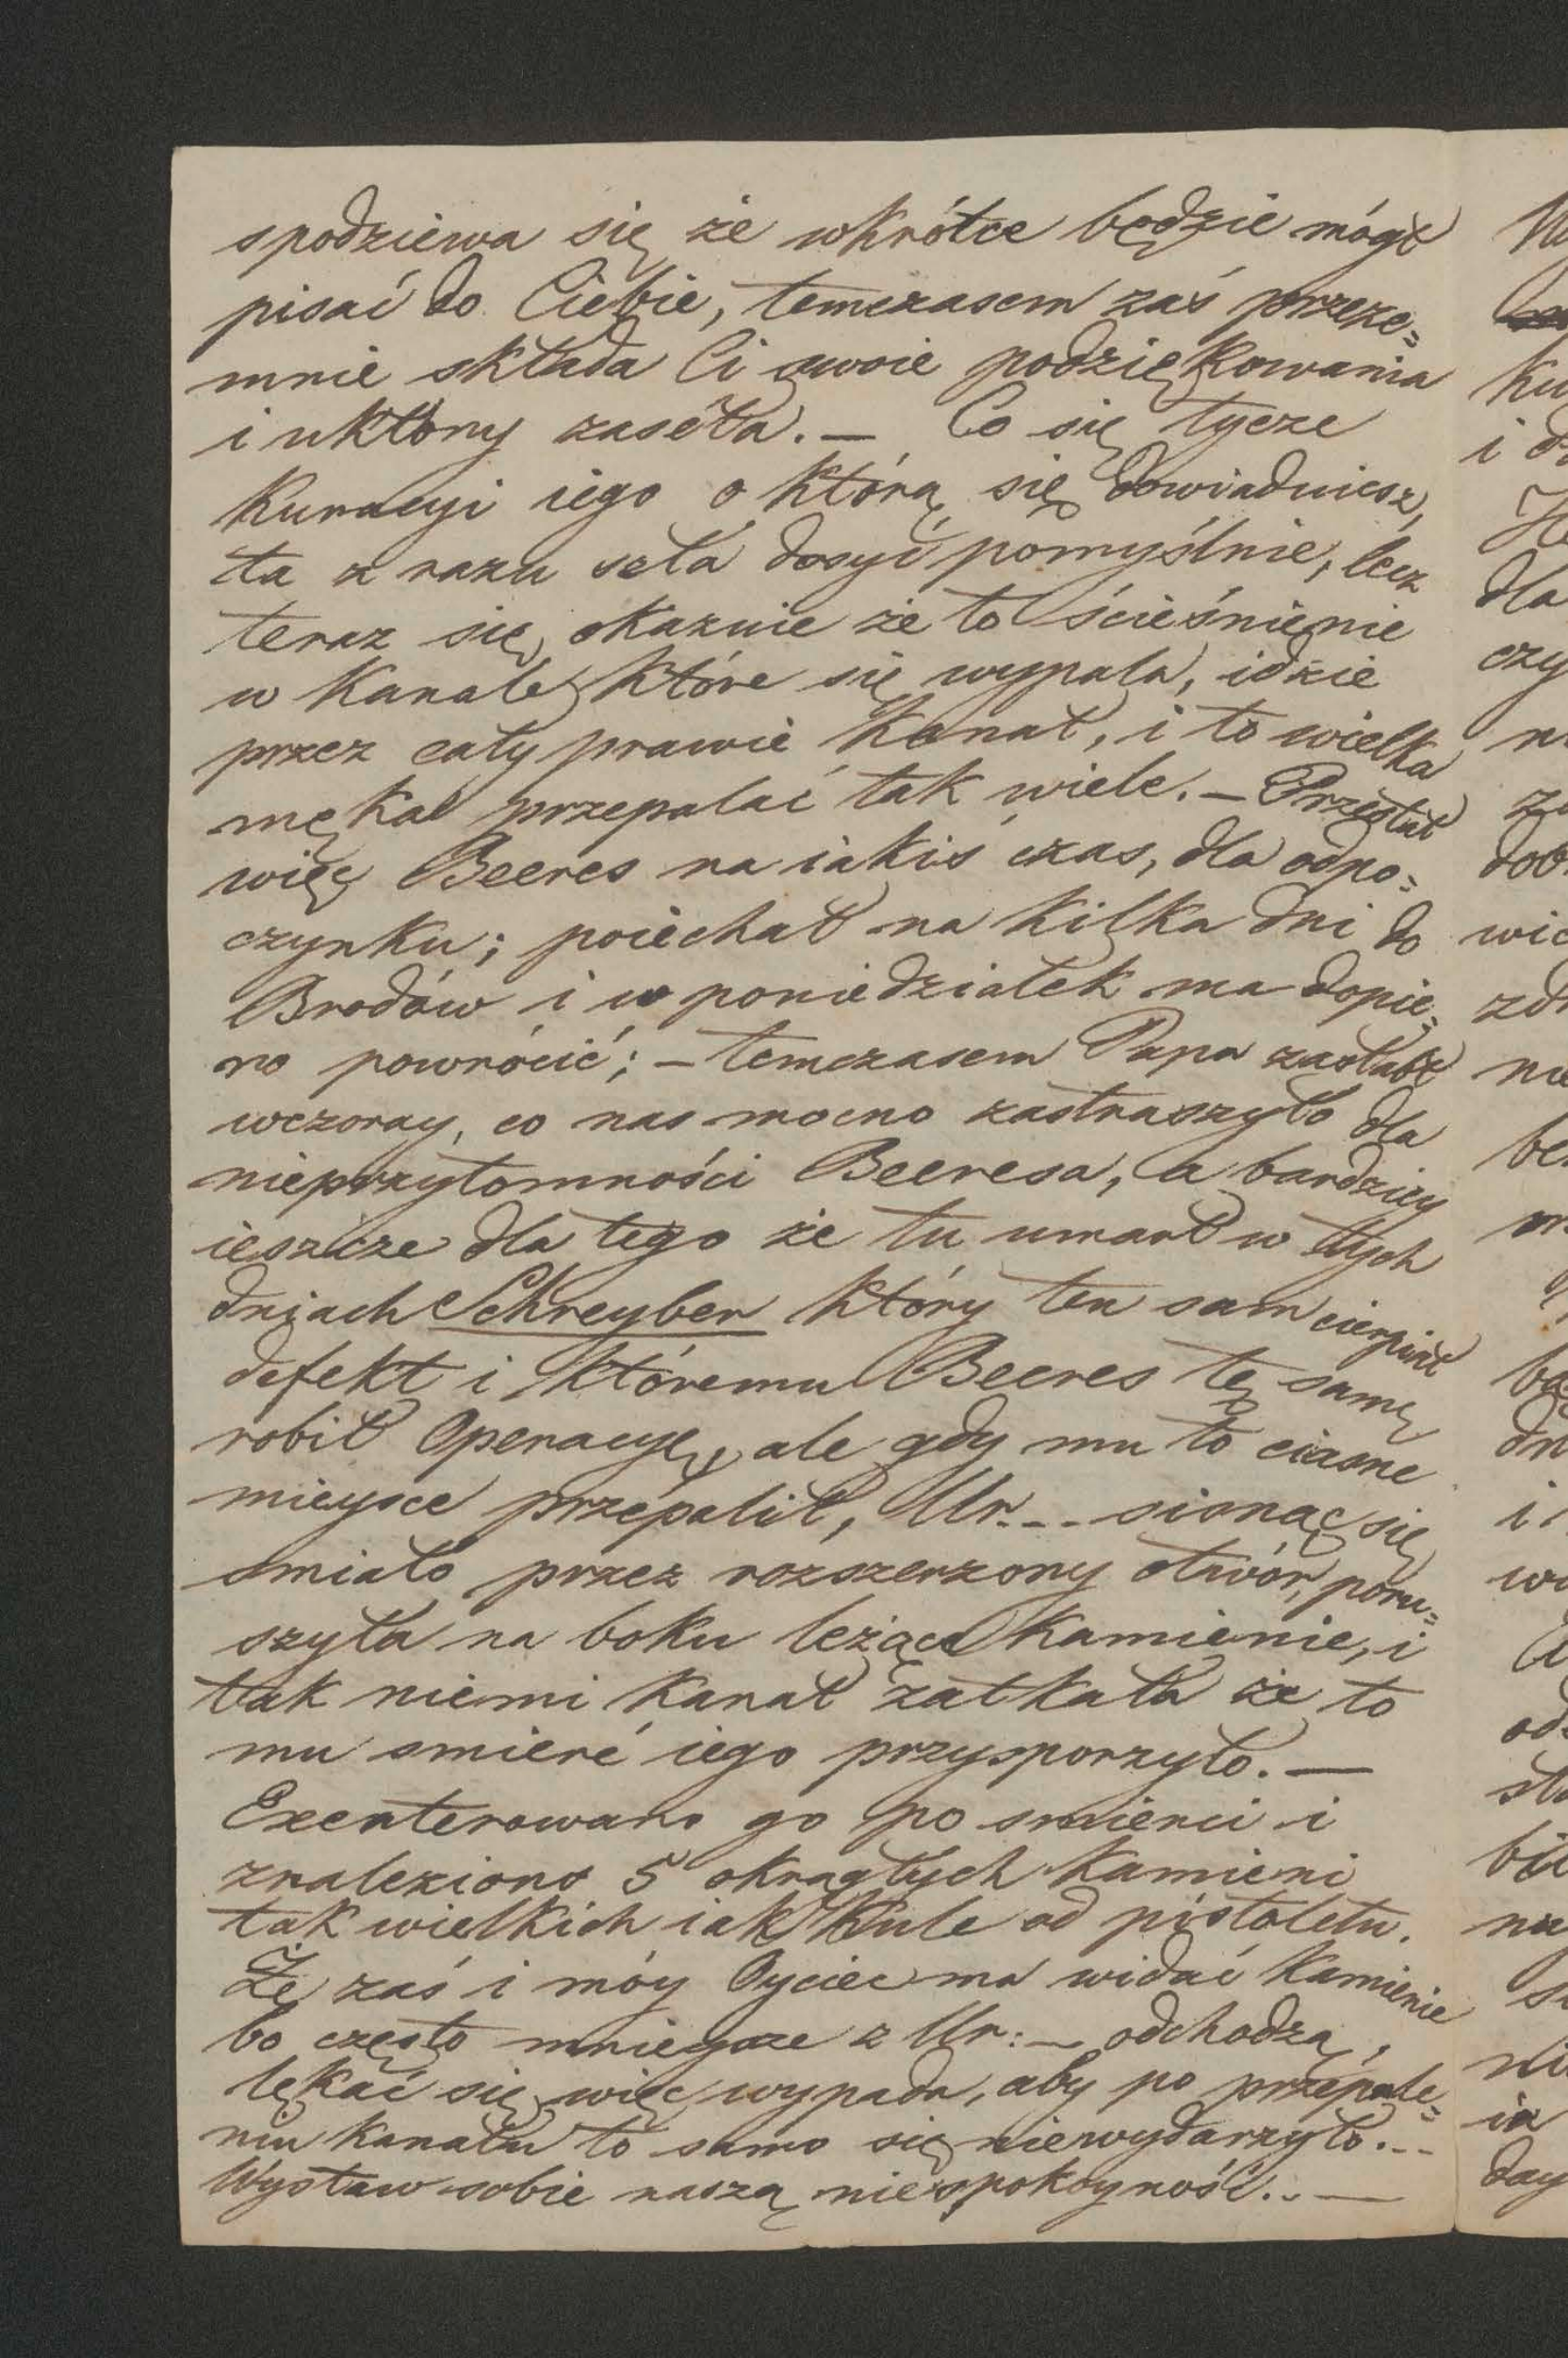 spodziewa się że wkrótce będzie mógł
pisać do Ciebie, temczasem zaś przeze=
mnie składa Ci swoie podziękowania
i ukłony zaséła. — Co się tycze
Kuracyi iego o którą się dowiaduiesz,
ta z razu szła dosyć pomyślnie, lecz
teraz się okazuie że to ścieśnienie
w Kanale które się wypala, idzie
przez cały prawie Kanał, i to wielka
męka przepalać tak wiele. — Przestał
więc Beeres na iakiś czas, dla odpo=
czynku; poiechał na kilka dni do
Brodów i w poniedziałek ma dopie=
ro powrócić; — temczasem Papa zasłabł
wczoray, co nas mocno zastraszyło dla
nieprzytomności Beeresa, a bardziey
ieszcze dla tego że tu umarł w tych
dniach Schreyber który ten sam cierpiał
defekt i któremu Beeres tę samę
robił Operacyę, ale gdy mu to ciasne
mieysce przepalił, Ur... sionąc się
smiało przez rozszerzony otwór, poru=
szyła na boku leżące Kamienie, i
tak niemi Kanał zatkała że to
mu smierć iego przysporzyło. —
Exenterowano go po smierci i
znaleziono 5 okrągłych Kamieni
tak wielkich iak Kule od pistoletu.
Że zaś i móy Oyciec ma widać Kamienie
bo często mnieysze z Ur: — odchodzą,
lękać się więc wypada, aby po przepale=
niu kanału to samo się niewydarzyło...
Wystaw sobie naszą niespokoyność.. —